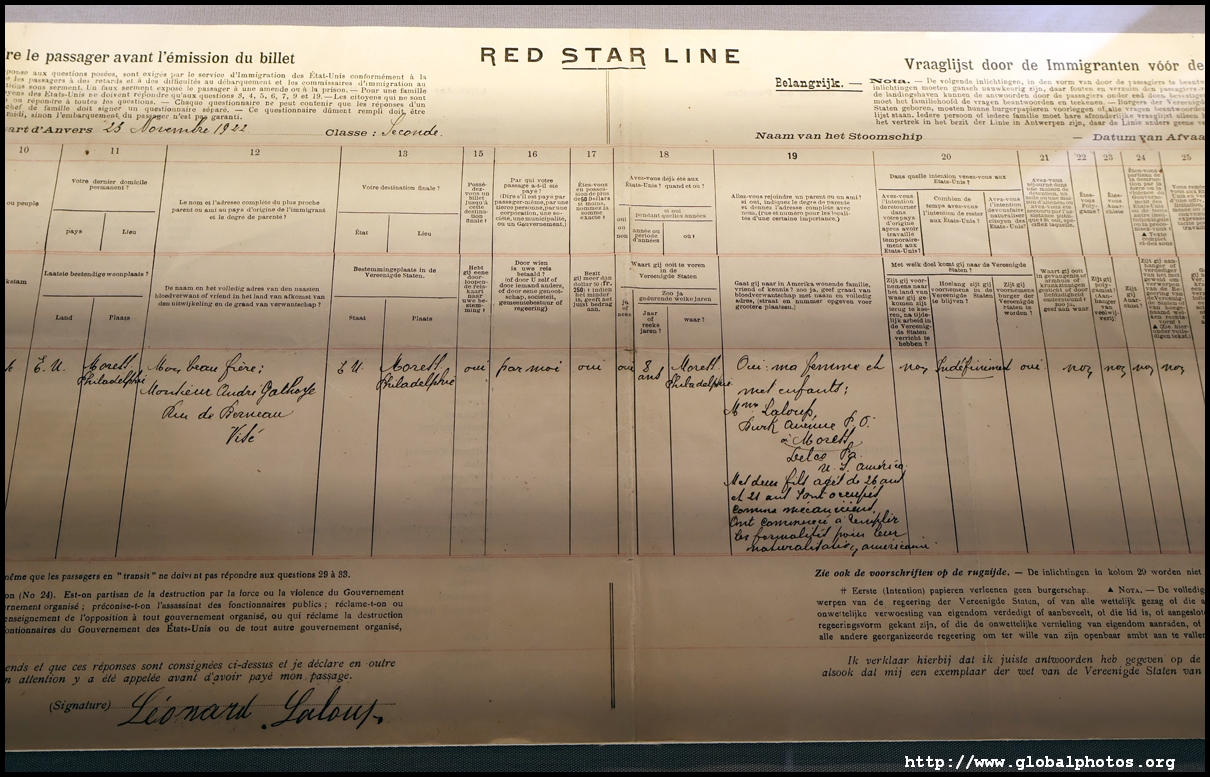 re le passager avant l'émission du billet
RED STAR LINE
Vraaglijst door de Immigranten vóór de
ponse aux questions posées, sont exigés par le service d'Immigration des États-Unis conformément à la
les passagers à des retards et à des difficultés au débarquement et les commissaires d'immigration au
tions sous serment. Un faux serment expose le passager à une amende ou à la prison. — Pour une famille
yens des États-Unis ne doivent répondre qu'aux questions 3, 4, 5, 6, 7, 9 et 19. — Les citoyens qui ne sont
ou répondre à toutes les questions. — Chaque questionnaire ne peut contenir que les réponses d'un
chef de famille doit signer un questionnaire séparé. — Ce questionnaire dûment rempli doit être
midi, sinon l'embarquement du passager n'est pas garanti.
Belangrijk. —
Nota. — De volgende inlichtingen, in den vorm van door de passagiers te
inlichtingen moeten gansch nauwkeurig zijn, daar fouten en verzuim den
art d'Anvers 23 Novembre 1922
Classe : Seconde.
Naam van het Stoomschip
— Datum van Afvaa
10
11
12
13
15
16
17
18
19
20
21
22
23
24
25
ou peuple
Votre dernier domicile
permanent ?
pays
Lieu
Le nom et l'adresse complète du plus proche
parent ou ami au pays d'origine de l'immigrant
et le degré de parenté ?
Votre destination finale ?
État
Lieu
Possé-
dez-vous un
billet
jusqu'à
cette
destina-
tion
finale ?
Par qui votre
passage a-t-il été
payé ?
(Dire s'il est payé par le
passager-même, par une
tierce personne, par une
corporation, une so-
ciété, une municipalité,
ou un Gouvernement.)
Êtes-vous
en posses-
sion de plus
de 50 Dollars
et si moins,
nommez la
somme
exacte ?
Avez-vous déjà été aux
États-Unis ? quand et où ?
oui
ou
non
si oui
pendant quelles années
année ou
période
d'années
où ?
Allez-vous rejoindre un parent ou un ami ?
si oui, indiquez le degré de parenté
et donnez l'adresse complète avec
nom, (rue et numéro pour les locali-
tés d'une certaine importance.)
Dans quelle intention venez-vous aux
États-Unis ?
Avez-vous
l'intention
de retourner
dans votre
pays d'origine
après avoir
travaillé
temporaire-
ment aux
États-Unis ?
Combien de
temps avez-vous
l'intention de rester
aux États-Unis ?
Avez-vous
l'intention
de devenir
citoyen des
États-Unis ?
Êtes-
vous
Poly-
game ?
Êtes-
vous
Anar-
chiste
kstam
Laatste bestendige woonplaats ?
Land
Plaats
De naam en het volledig adres van den naasten
bloedverwant of vriend in het land van afkomst van
den uitwijkeling en de graad van verwantschap ?
Bestemmingsplaats in de
Vereenigde Staten.
Staat
Plaats
Hebt
gij eene
door-
loopende
reis-
kaart
naar
uwe be-
stem-
ming ?
Door wien
is uwe reis
betaald ?
(of door U zelf of
door iemand anders,
of door eene genoot-
schap, societeit,
gemeentebestuur of
regeering)
Bezit
gij meer dan
dollar 50 (fr.
250) ; indien
niet minder
is, geeft het
juist bedrag
aan.
Waart gij ooit te voren
in de
Vereenigde Staten
Zoo ja
gedurende welke jaren
Jaar
of
reeks
jaren ?
waar ?
Gaat gij naar in Amerika wonende familie,
vriend of kennis ? zoo ja, geef graad van
bloedverwantschap met naam en volledig
adres, (straat en nummer opgeven voor
grootere plaatsen.)
Met welk doel komt gij naar de Vereenigde
Staten ?
Zijt gij voor-
nemens naar
uw land van
waar gij ge-
komen zijt
terug te kee-
ren, na tijde-
lijk arbeid in
de Vereenig-
de Staten
verricht te
hebben ?
Hoelang zijt gij
voornemens in de
Vereenigde Staten
te blijven ?
Zijt gij
voornemens
burger
der
Vereenigde
Staten te
worden ?
E. U.
Moretti
Philadelphie
Mon beau frère ;
Monsieur André
Rue de Berneau
Visé
E U.
Moretti
Philadelphie
oui
par moi
oui
oui
8
ans
Moretti
Philadelphie
Oui : ma femme et
mes enfants ;
Mme Laloup,
Burk Avenue P. O.
à Moretti
Delco Pa.
U. S. América
Mes deux fils agés de 26 ans
et 21 ans sont occupés
comme mécaniciens,
Ont commencé à remplir
les formalités pour leur
naturalisation américaine
non
Indéfiniment
oui
non
non
non
non
même que les passagers en "transit" ne doivent pas répondre aux questions 29 à 33.
on (No 24). Est-on partisan de la destruction par la force ou la violence du Gouvernement
rnement organisé ; préconise-t-on l'assassinat des fonctionnaires publics ; réclame-t-on ou
enseignement de l'opposition à tout gouvernement organisé, ou qui réclame la destruction
onctionnaires du Gouvernement des États-Unis ou de tout autre gouvernement organisé,
Zie ook de voorschriften op de rugzijde. — De inlichtingen in kolom 29 worden niet
‡ Eerste (Intention) papieren verleenen geen burgerschap. ▲ NOTA. — De volledig
werpen van de regeering der Vereenigde Staten, of van alle wettelijk gezag of die a
onwettelijke verwoesting van eigendom verdedigt of aanbeveelt, of die lid is, of aangeslot
regeeringsvorm gekant zijn, of die de onwettelijke vernieling van eigendom aanraden, of
alle andere georganizeerde regeering om ter wille van zijn openbaar ambt aan te vallen
ends et que ces réponses sont consignées ci-dessus et je déclare en outre
n attention y a été appelée avant d'avoir payé mon passage.
Ik verklaar hierbij dat ik juiste antwoorden heb gegeven op de
alsook dat mij een exemplaar der wet van de Vereenigde Staten van
(Signature) Léonard Laloup.
http://www.globalphotos.org